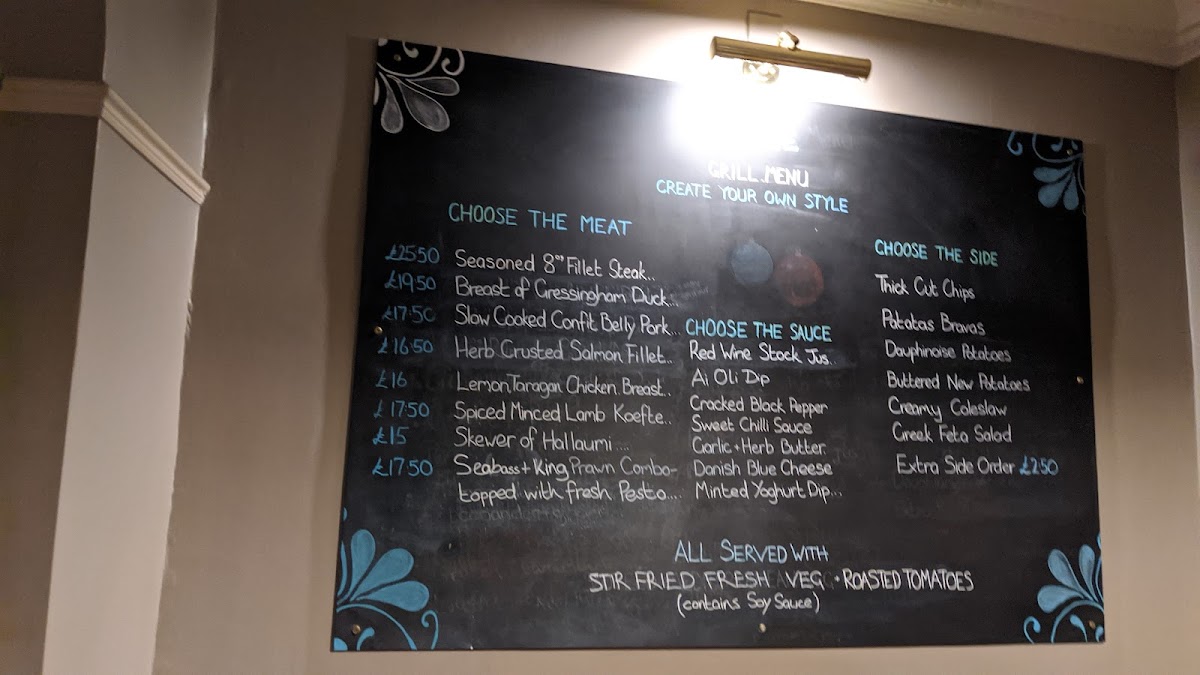 GRILL MENU
CREATE YOUR OWN STYLE
CHOOSE THE MEAT
£25.50 Seasoned 8" Fillet Steak...
£19.50 Breast of Gressingham Duck...
£17.50 Slow Cooked Confit Belly Pork...
£16.50 Herb Crusted Salmon Fillet..
£16 Lemon, Taragan Chicken Breast..
£17.50 Spiced Minced Lamb Koefte..
£15 Skewer of Hallaumi....
£17.50 Seabass + King Prawn Combo-
topped with fresh Pesto....
CHOOSE THE SAUCE
Red Wine Stock Jus..
Ai Oli Dip
Cracked Black Pepper
Sweet Chilli Sauce
Garlic + Herb Butter.
Danish Blue Cheese
Minted Yoghurt Dip...
CHOOSE THE SIDE
Thick Cut Chips
Patatas Bravas
Dauphinoise Potatoes
Buttered New Potatoes
Creamy Coleslaw
Greek Feta Salad
Extra Side Order £2.50
ALL SERVED WITH
STIR FRIED FRESH VEG + ROASTED TOMATOES
(contains Soy Sauce)